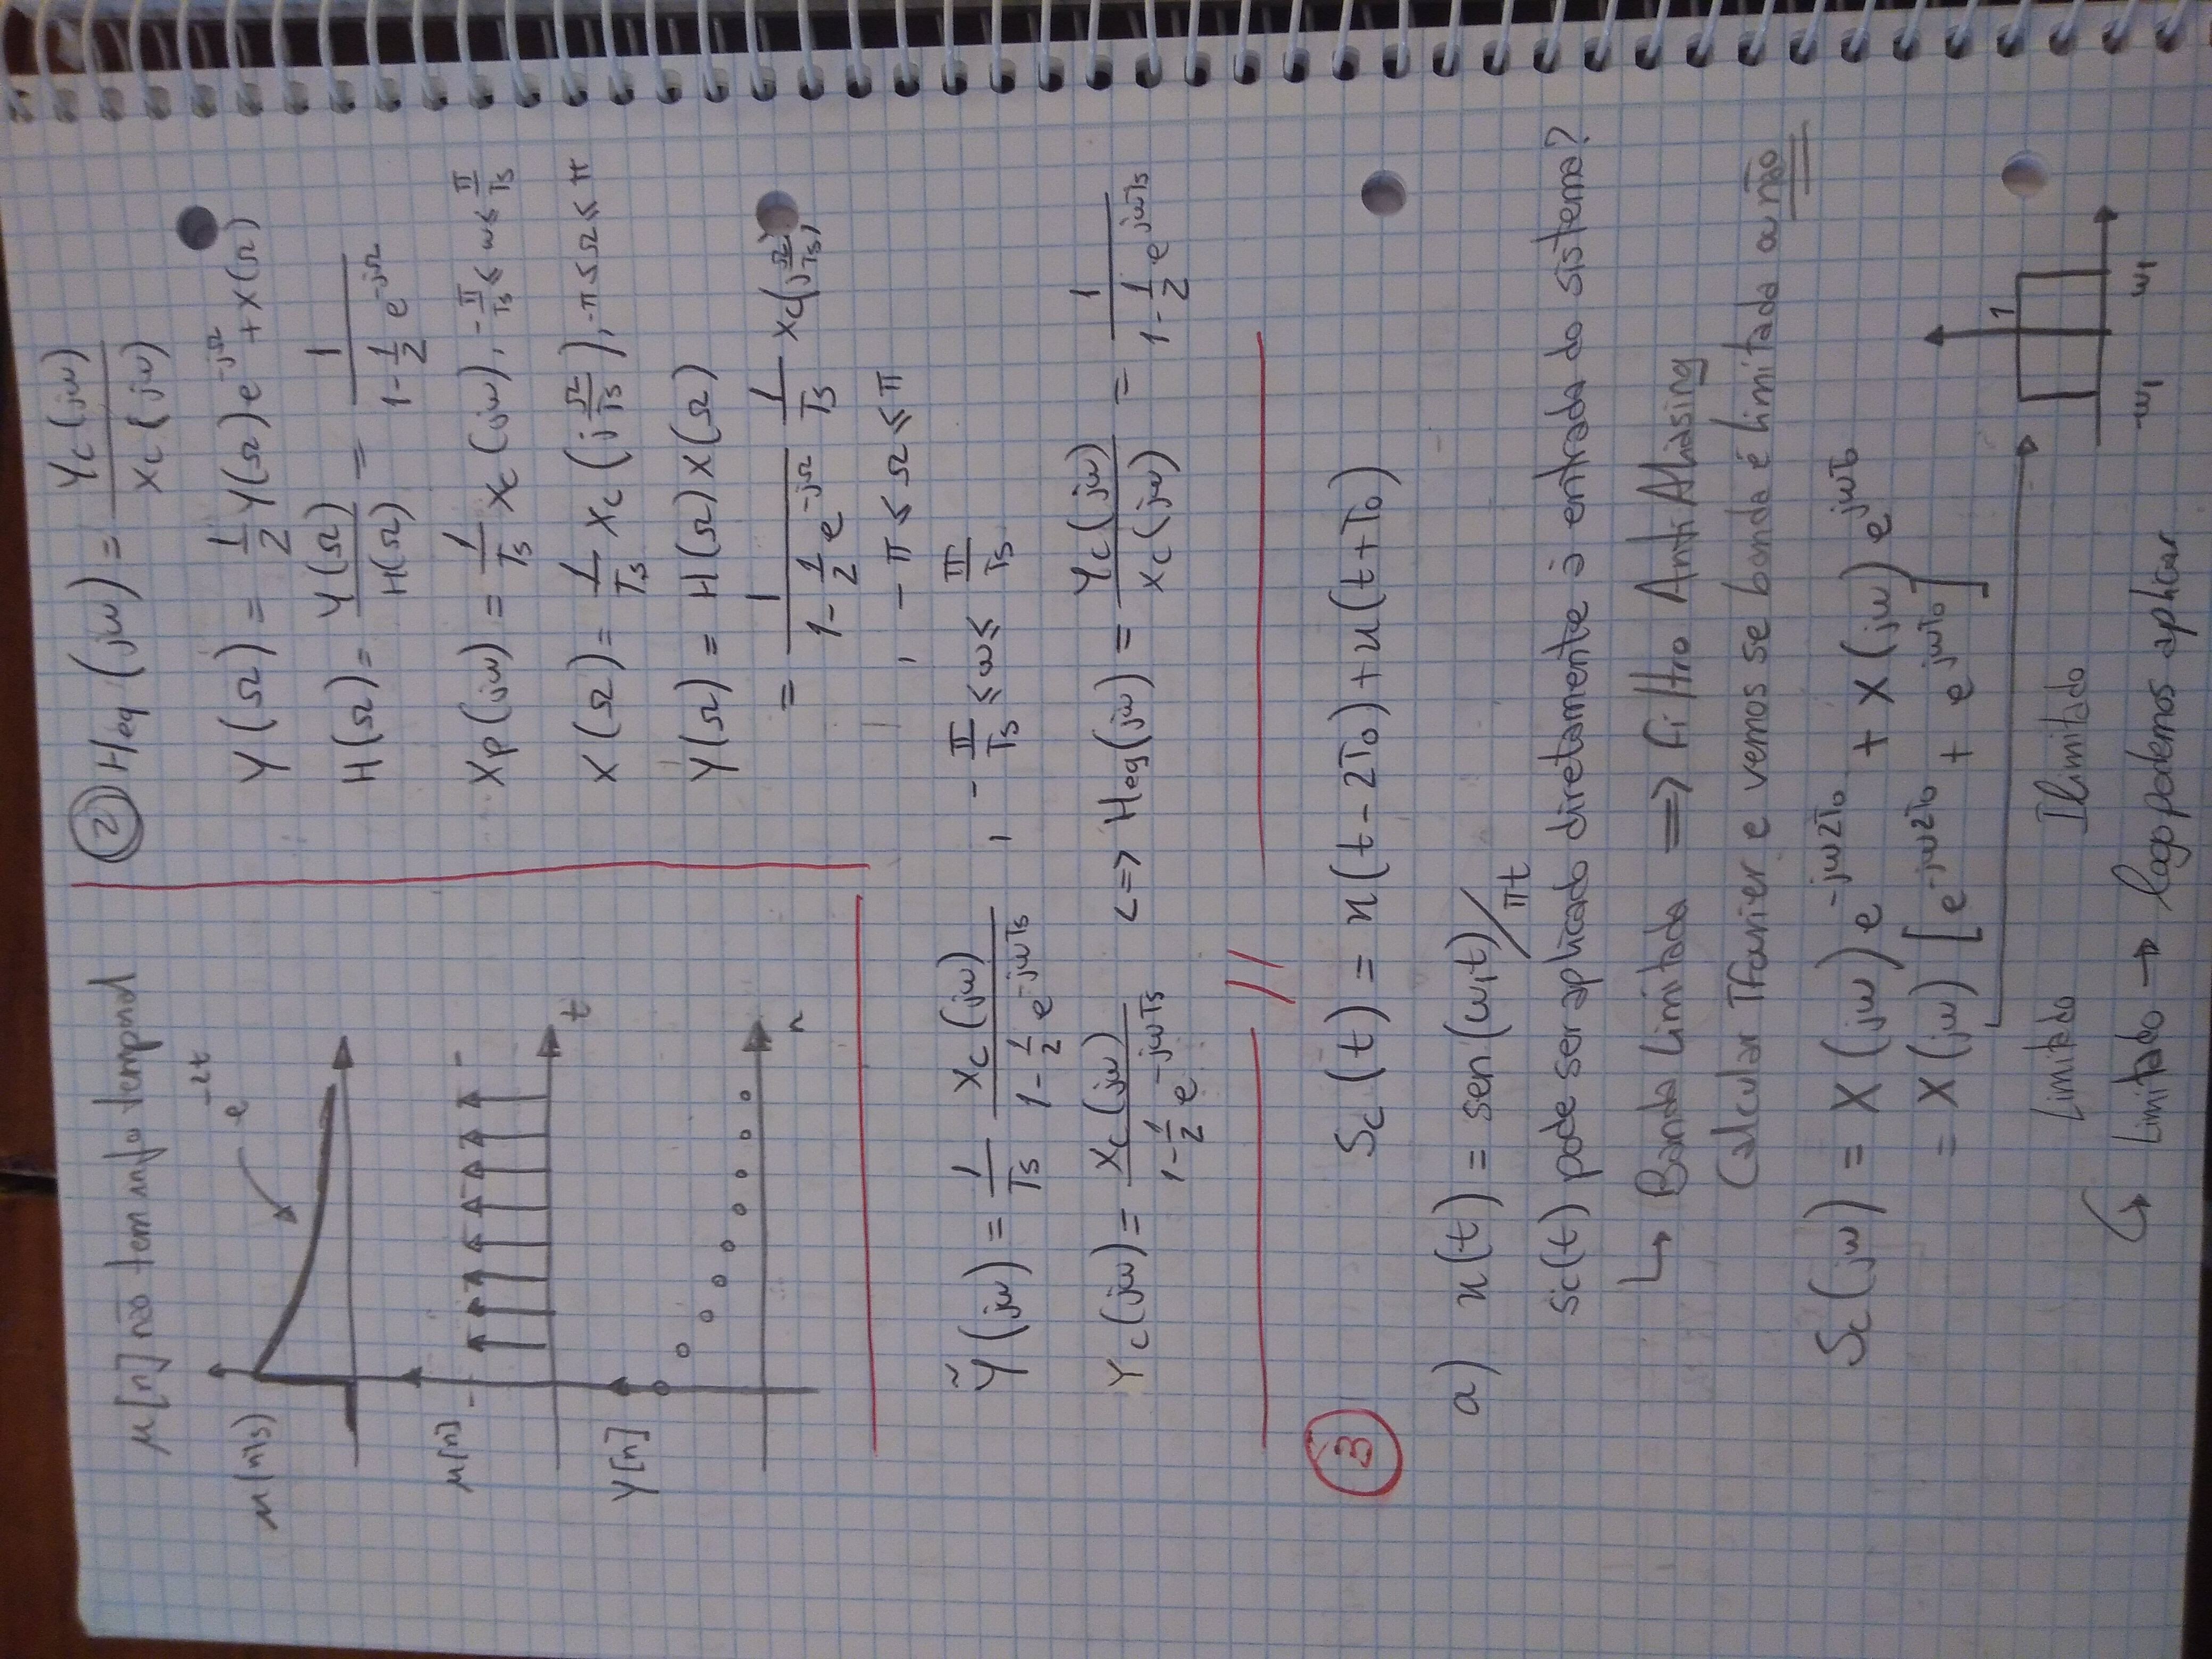 μ[n] não tem info temporal
μ(nTs)
e^{-2t}
μ[n]
t
Y[n]
n
② Heq(jω) = Yc(jω) / Xc(jω)
Y(Ω) = 1/2 Y(Ω) e^{-jΩ} + X(Ω)
H(Ω) = Y(Ω) / H(Ω) = 1 / (1 - 1/2 e^{-jΩ})
Xp(jω) = 1/Ts Xc(jω), -π/Ts ≤ ω ≤ π/Ts
X(Ω) = 1/Ts Xc(j Ω/Ts), -π ≤ Ω ≤ π
Y(Ω) = H(Ω) X(Ω)
= 1 / (1 - 1/2 e^{-jΩ}) 1/Ts Xc(j Ω/Ts)
, -π ≤ Ω ≤ π
Ỹ(jω) = 1/Ts Xc(jω) / (1 - 1/2 e^{-jωTs}) , -π/Ts ≤ ω ≤ π/Ts
Yc(jω) = Xc(jω) / (1 - 1/2 e^{-jωTs}) <=> Heq(jω) = Yc(jω) / Xc(jω) = 1 / (1 - 1/2 e^{jωTs})
③ Sc(t) = x(t - 2T0) + x(t + T0)
a) x(t) = sen(ω1t)/πt
sc(t) pode ser aplicado diretamente à entrada do sistema?
↳ Banda Limitada => Filtro Anti Aliasing
Calcular TFourier e vemos se banda é limitada ou não
Sc(jω) = X(jω) e^{-jω2T0} + X(jω) e^{jωT0}
= X(jω) [e^{-jω2T0} + e^{jωT0}]
1
-ω1 ω1
Limitado Ilimitado
↳ Limitado → logo podemos aplicar